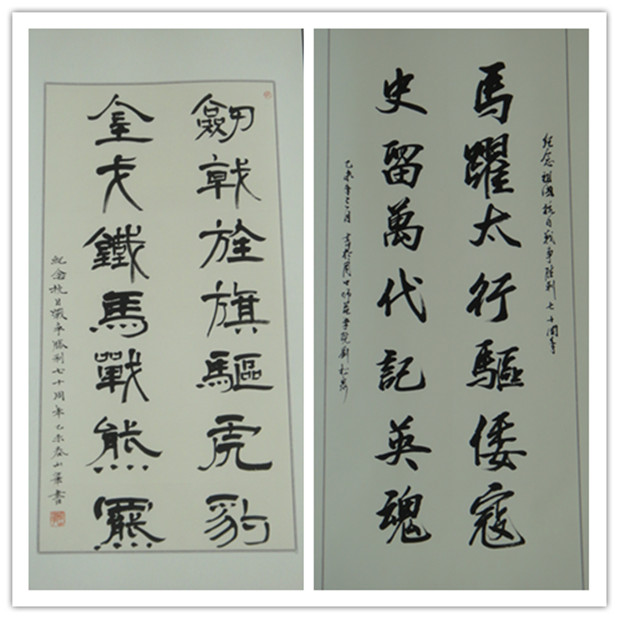 劒戟旌旗驅虎豹
金戈鐵馬戰熊羆
紀念抗日戰爭勝利七十周年乙未春
紀念祖國抗日戰爭勝利七十周年
馬躍太行驅倭寇
史留萬代記英魂
乙未年